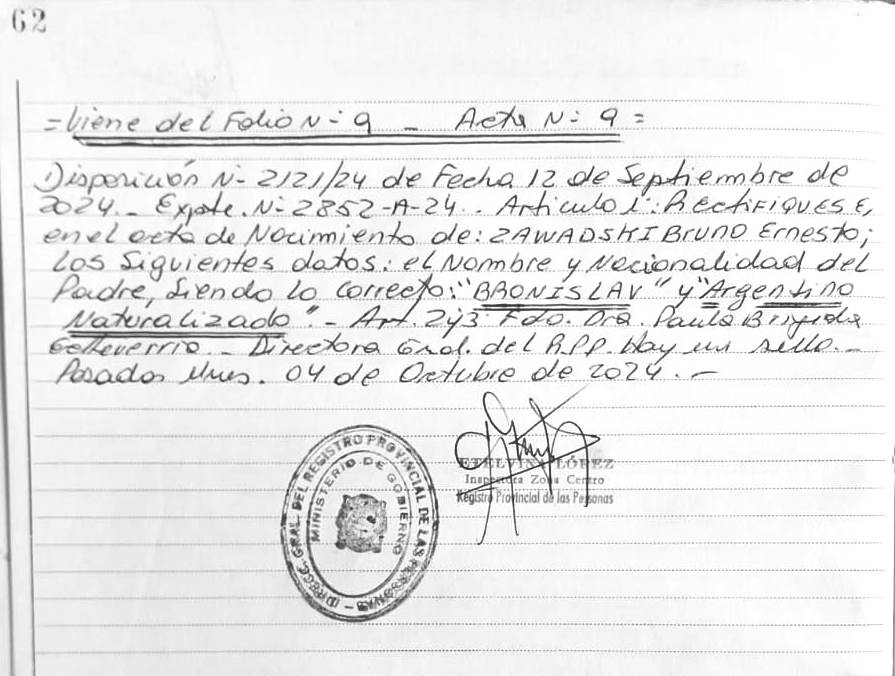 62
= Viene del Folio N= 9 _ Acta N= 9 =
Disposición N- 2121/24 de Fecha 12 de Septiembre de
2024._ Expte. N= 2852-A-24. Articulo 1: RECTIFIQUESE,
en el acta de Nacimiento de: ZAWADSKI BRUNO Ernesto;
Los Siguientes datos: el Nombre y Nacionalidad del
Padre, siendo lo correcto: "BRONISLAV" y "Argentino
Naturalizado". _ Art. 2y3 Fdo. Dra. Paula Brigida
_ Directora Gral. del R.P.P. Hay un sello. _
Posadas Mnes. 04 de Octubre de 2024. _
ETELVINA LÓPEZ
Inspectora Zona Centro
Registro Provincial de las Personas
DIREC. GRAL. DEL REGISTRO PROVINCIAL DE LAS PERSONAS -
MINISTERIO DE GOBIERNO